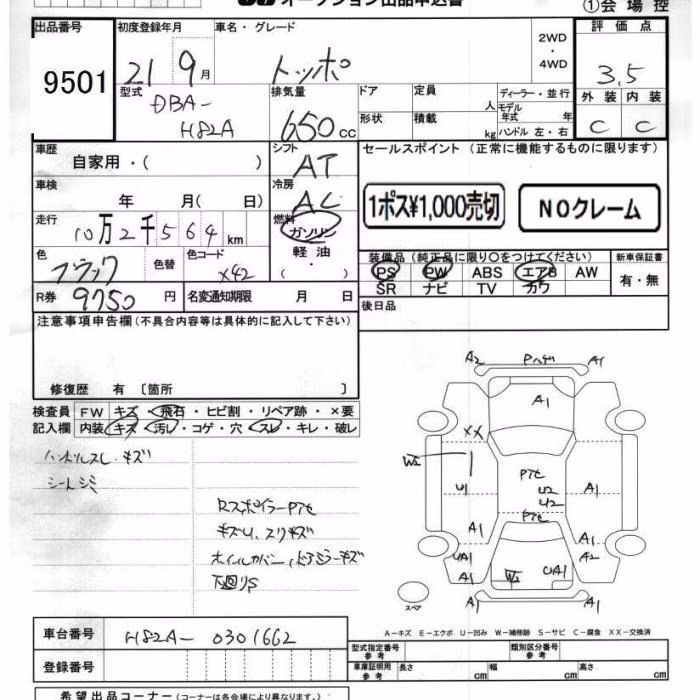 オークション出品申込書
①会場控
出品番号
9501
初度登録年月
21 9月
車名・グレード
トッポ
2WD
・
4WD
評価点
3.5
外装 内装
C C
型式
DBA-
H82A
排気量
650cc
ドア
定員
人
形状
積載
kg
ディーラー・並行
モデル
年式 年
ハンドル 左・右
車歴
自家用・( )
シフト
AT
車検
年 月( 日)
冷房
AC
走行
10万2千564km
燃料
ガソリン
軽油
・
( )
色
ブラック
色替
色コード
X42
R券
9750円
名変通知期限 月 日
セールスポイント(正常に機能するものに限ります)
1ポス¥1,000売切
NOクレーム
装備品(純正品に限り〇をつけてください)
PS PW ABS エアB AW
SR ナビ TV カワ
新車保証書
有・無
後日品
注意事項申告欄(不具合内容等は具体的に記入して下さい)
修復歴 有〔箇所 〕
検査員
記入欄
FW キズ・飛石・ヒビ割・リペア跡・×要
内装 キズ・汚レ・コゲ・穴・スレ・キレ・破レ
ハンドルスレ・キズ
シートシミ
RスポイラーPたて
キズU、スリキズ
ホイルカバー、ドアミラーキズ
下回りS
A2 Pハゲ A1
A1
XX
W2
U1
Pたて
U2
U2
Pたて
A1
A1
A1
UA1
A2
A1
W2
UA1
A1
スペア
A-キズ E-エクボ U-凹み W-補修跡 S-サビ C-腐食 XX-交換済
車台番号
H82A-0301662
登録番号
型式指定番号
参考
類別区分番号
参考
車庫証明用
参考
長さ cm
幅 cm
高さ cm
希望出品コーナー(コーナーは各会場により異なります。)